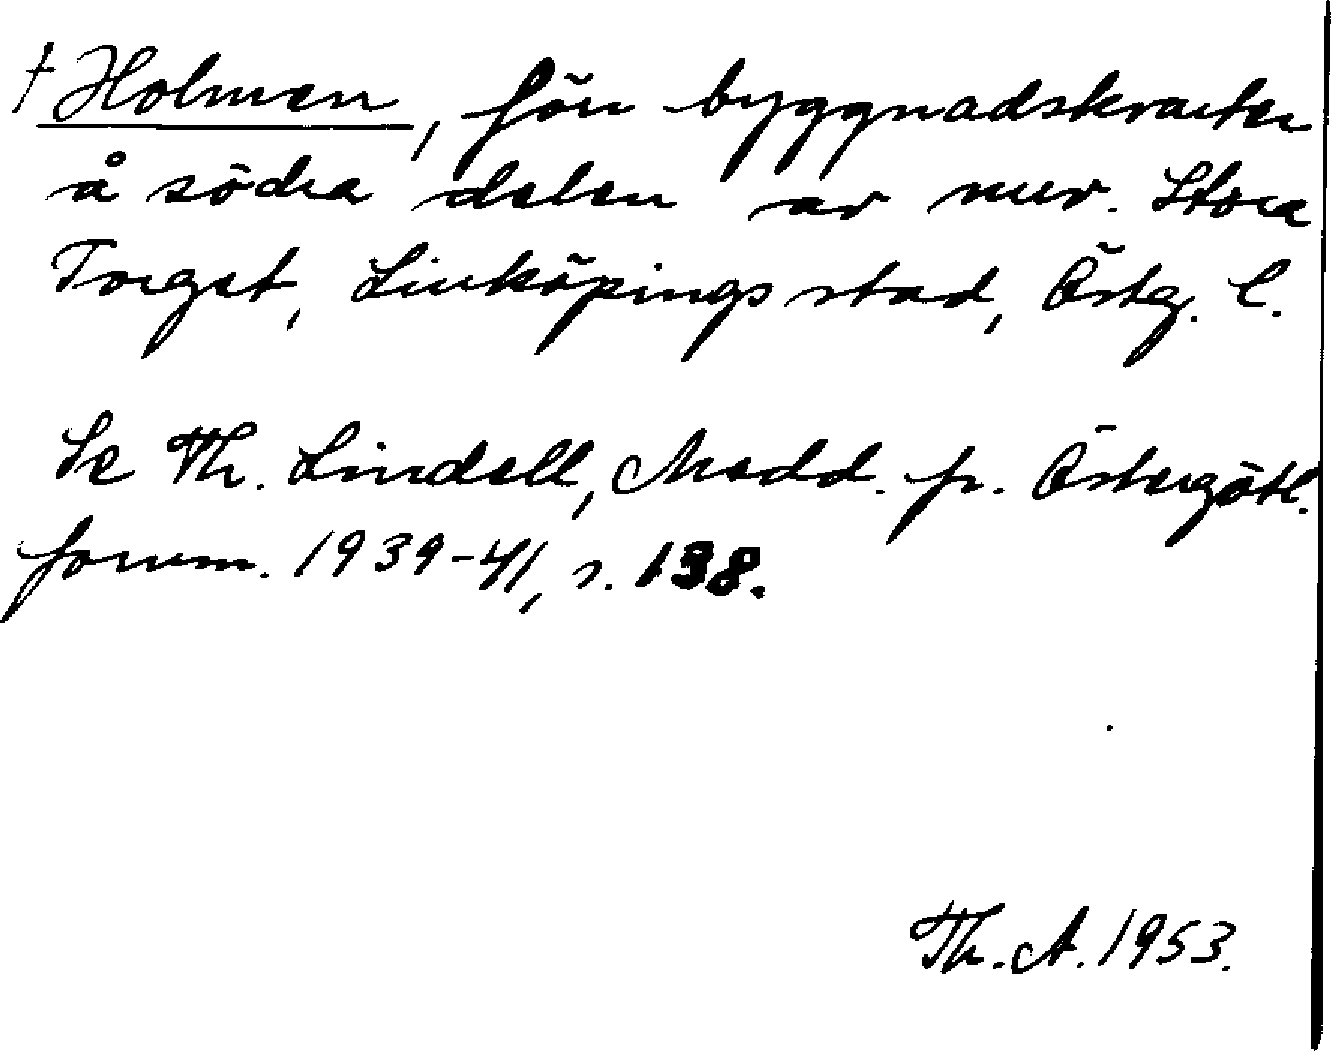 † Holmen, förr byggnadskvarter
å södra delen av nuv. Stora
Torget, Linköpings stad, Östg. l.
Se Th. Lindell, Medd. fr. Östergötl.
fornm. 1939-41, s. 138.
Th. A. 1953.